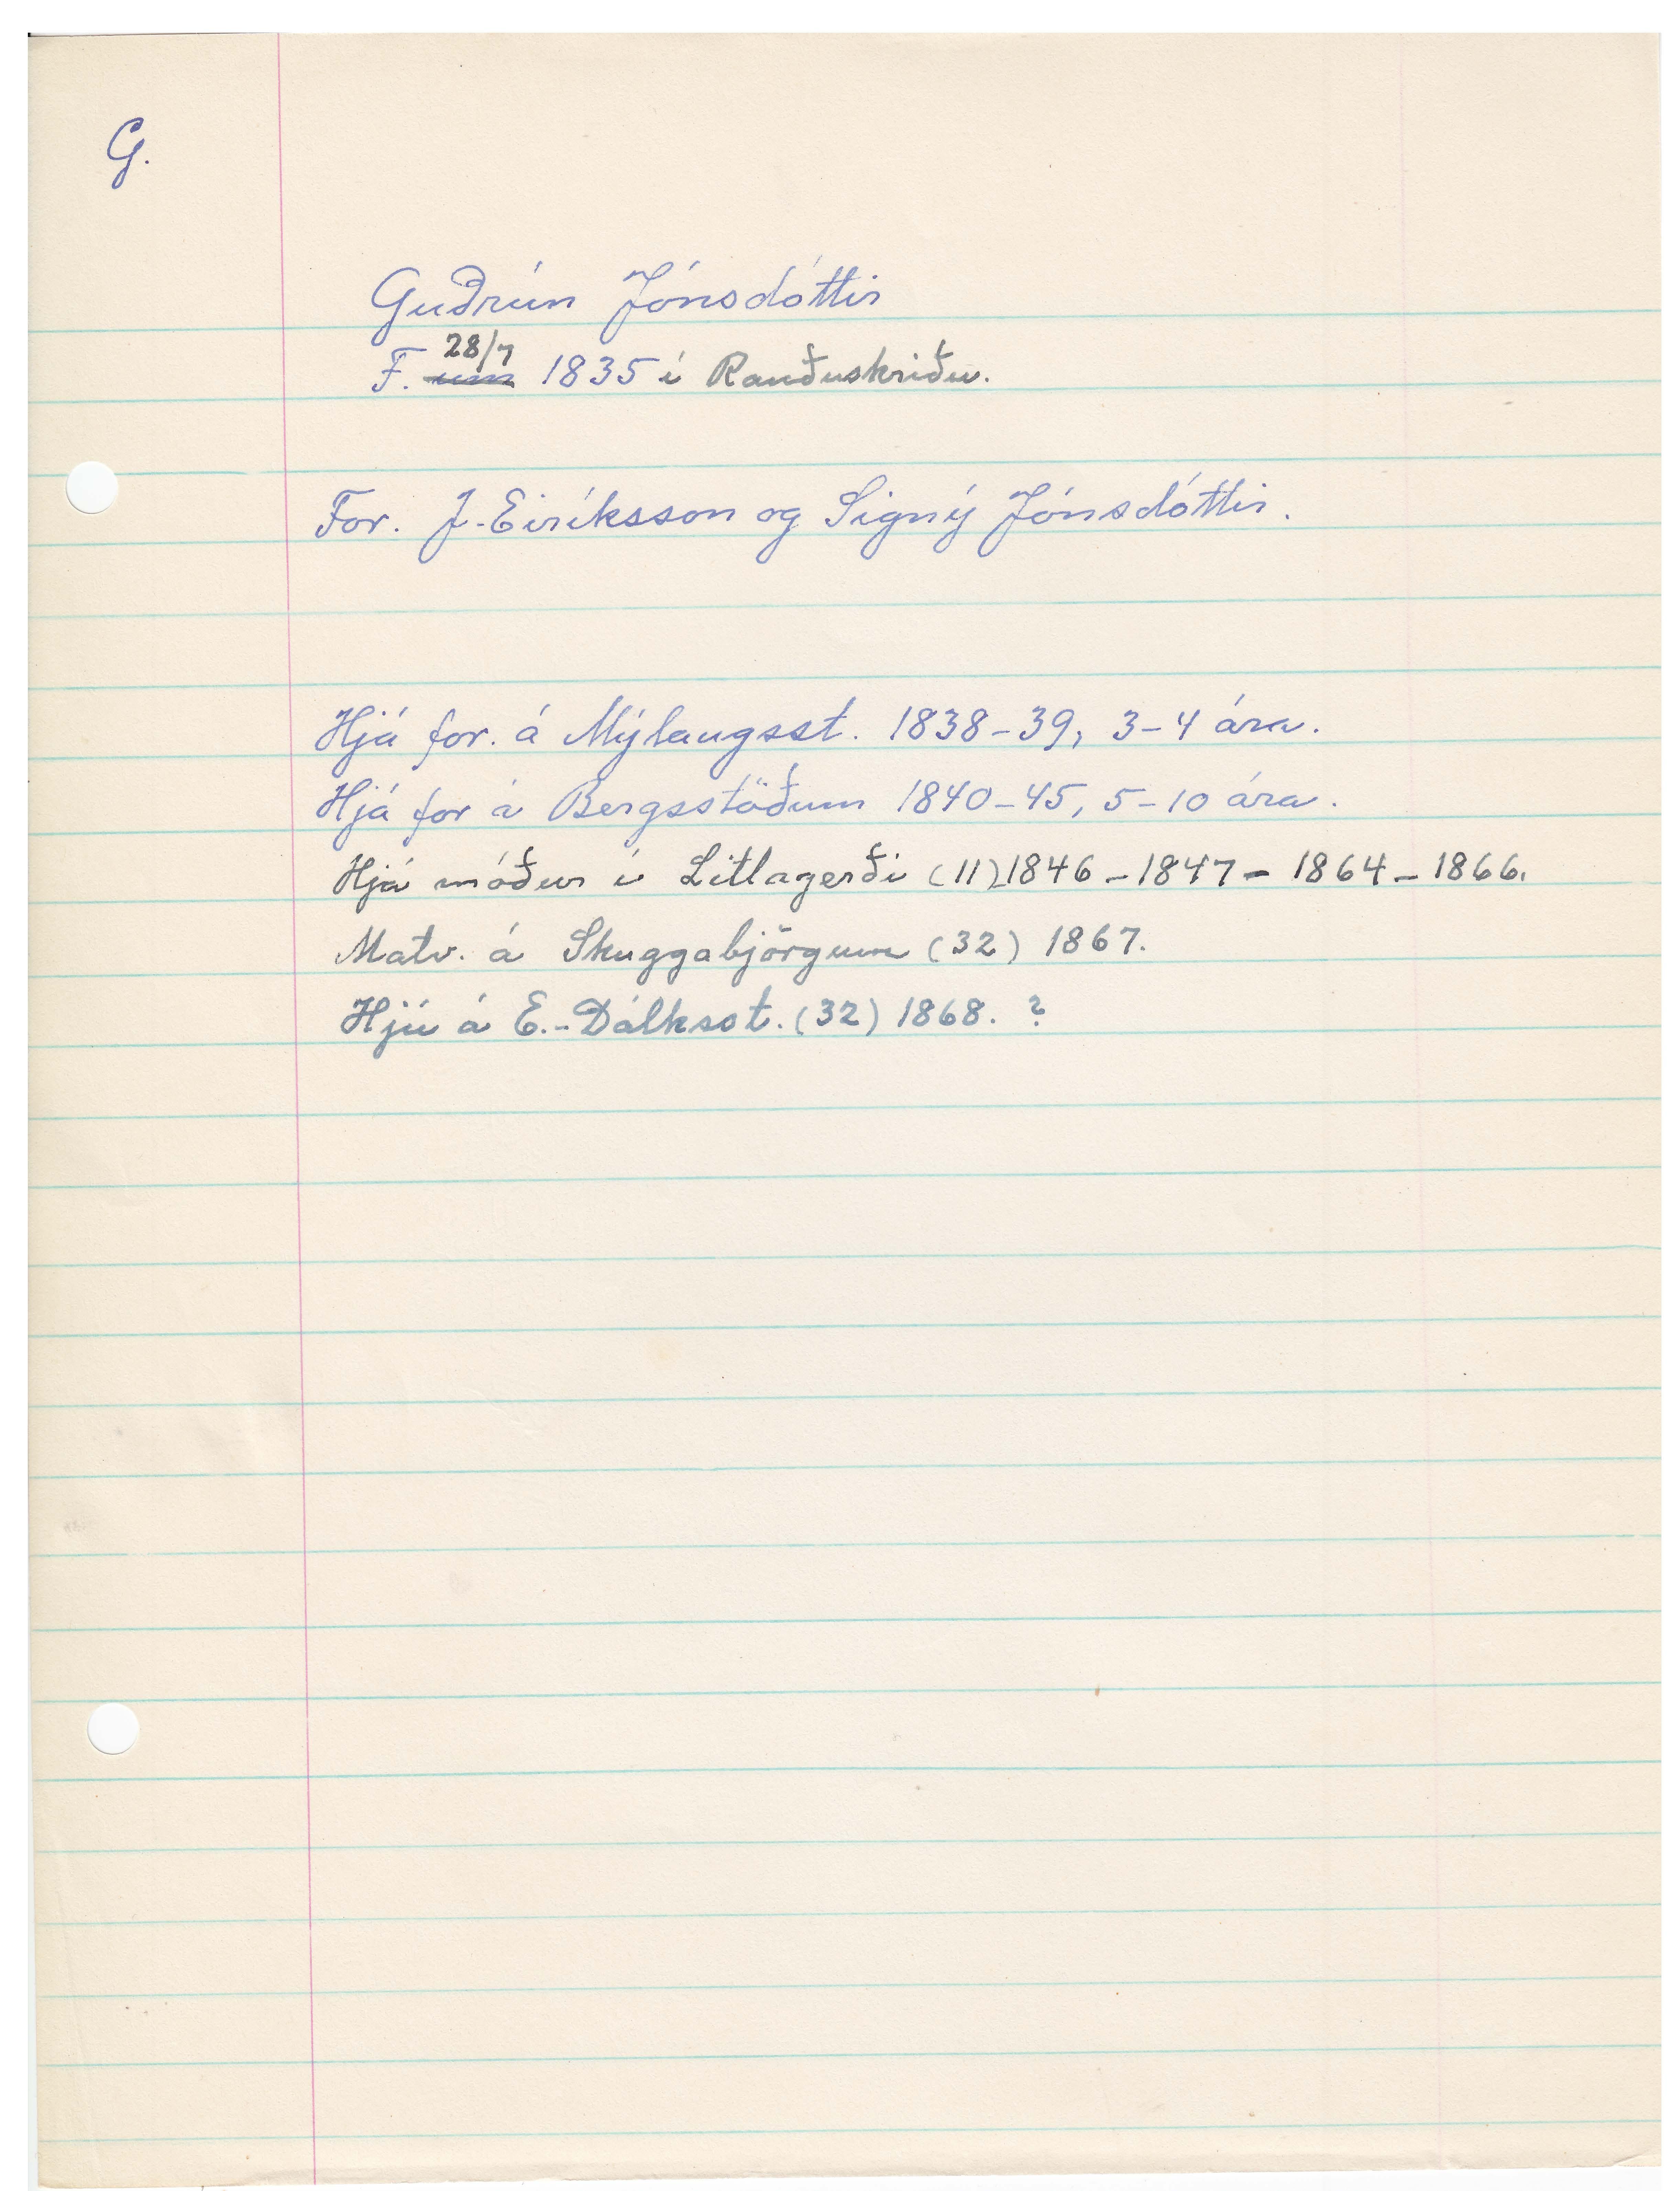 G.
Guðrún Jónsdóttir
F. 28/7 um 1835 í Rauðuskriðu.
For. J. Eiríksson og Signý Jónsdóttir.
Hjá for. á Mýlaugsst. 1838-39, 3-4 ára.
Hjá for á Bergsstöðum 1840-45, 5-10 ára.
Hjá móður í Litlagerði (11) 1846-1847-1864-1866.
Matv. á Skuggabjörgum (32) 1867.
Hjú á E.-Dálksst. (32) 1868. ?